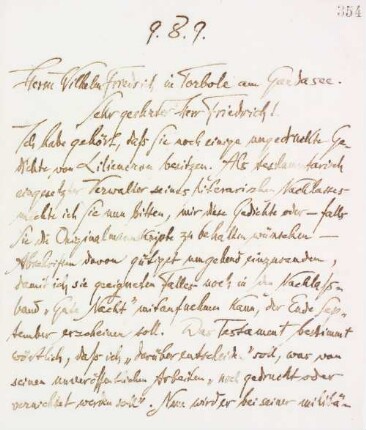 354
9. 8. 9.
Herrn Wilhelm Friedrich in Torbole am Gardasee.
Sehr geehrter Herr Friedrich!
Ich habe gehört, daß Sie noch einige ungedruckte Ge-
dichte von Liliencron besitzen. Als testamentarisch
eingesetzter Verwalter seines literarischen Nachlasses
möchte ich Sie nun bitten, mir diese Gedichte oder – falls
Sie die Originalmanuskripte zu behalten wünschen –
Abschriften davon gütigst umgehend einzusenden,
damit ich sie geeigneten Falles noch in den Nachlaß-
band „Gute Nacht“ mitaufnehmen kann, der Ende Sep-
tember erscheinen soll. Das Testament bestimmt
wörtlich, daß ich „darüber entscheiden soll, was von
seinen unveröffentlichten Arbeiten noch gedruckt oder
vernichtet werden soll“. Nun wird er bei seiner militä-